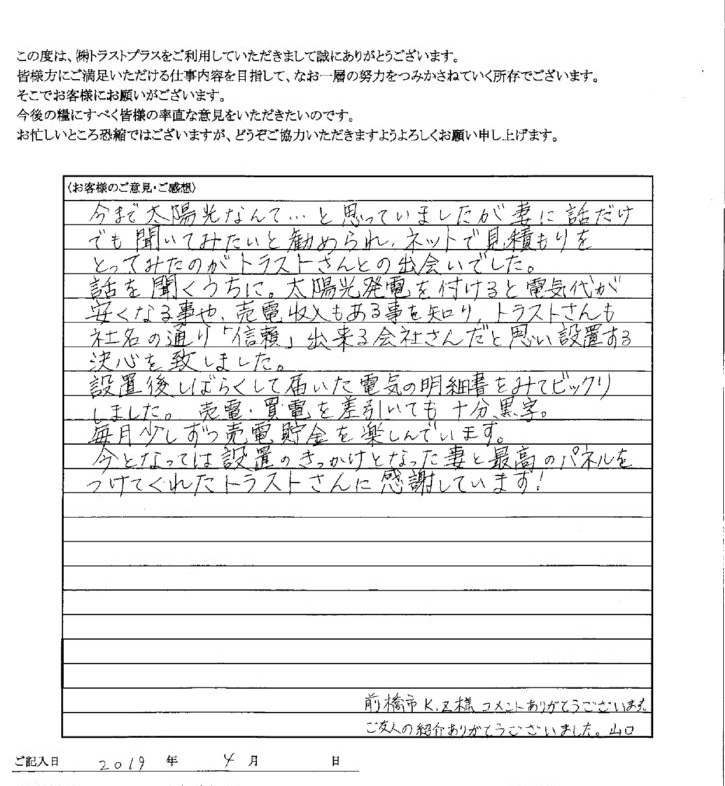 この度は、㈱トラストプラスをご利用していただきまして誠にありがとうございます。
皆様方にご満足いただける仕事内容を目指して、なお一層の努力をつみかさねていく所存でございます。
そこでお客様にお願いがございます。
今後の糧にすべく皆様の率直な意見をいただきたいのです。
お忙しいところ恐縮ではございますが、どうぞご協力いただきますようよろしくお願い申し上げます。
(お客様のご意見・ご感想)
今まで太陽光なんて…と思っていましたが妻に話だけ
でも聞いてみたいと勧められ、ネットで見積もりを
とってみたのがトラストさんとの出会いでした。
話を聞くうちに。太陽光発電を付けると電気代が
安くなる事や、売電収入もある事を知り、トラストさんも
社名の通り「信頼」出来る会社さんだと思い設置する
決心を致しました。
設置後しばらくして届いた電気の明細書をみてビックリ
しました。売電・買電を差引いても十分、黒字。
毎月少しずつ売電貯金を楽しんでいます。
今となっては設置のきっかけとなった妻と最高のパネルを
つけてくれたトラストさんに感謝しています!
前橋市 K.Z様 コメントありがとうございました
ご友人の紹介ありがとうございました。山口
ご記入日 2019 年 4 月 日